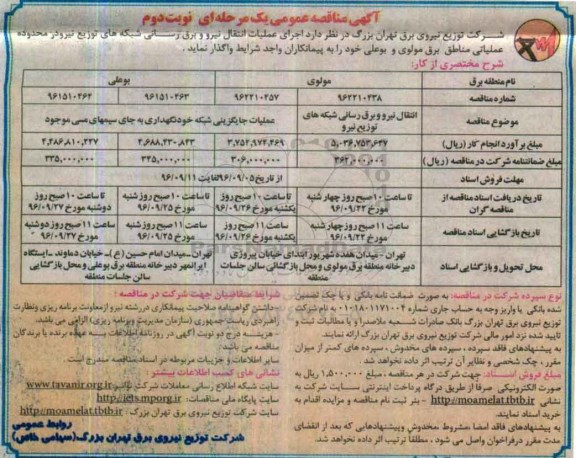 آگهی مناقصه عمومی یک مرحله ای نوبت دوم
شرکت توزیع نیروی برق تهران بزرگ در نظر دارد اجرای عملیات انتقال نیرو و برق رسانی شبکه های توزیع نیرو در محدوده
عملیاتی مناطق برق مولوی و بوعلی خود را به پیمانکاران واجد شرایط واگذار نماید.
شرح مختصری از کار:
نام منطقه برق مولوی بوعلی
شماره مناقصه ۹۶۲۲۱۰۲۳۸ ۹۶۲۲۱۰۲۵۷ ۹۶۱۵۱۰۲۶۳ ۹۶۱۵۱۰۲۶۴
موضوع مناقصه انتقال نیرو و برق رسانی شبکه های توزیع نیرو عملیات جایگزینی شبکه خودنگهداری به جای سیمهای مسی موجود
مبلغ برآورد انجام کار (ریال) ۵,۰۳۶,۷۵۳,۶۴۷ ۳,۷۵۲,۹۷۴,۴۶۹ ۴,۶۸۸,۲۳۰,۸۴۳ ۴,۲۸۶,۸۱۰,۲۴۷
مبلغ ضمانتنامه شرکت در مناقصه (ریال) ۳۶۲,۰۰۰,۰۰۰ ۳۰۶,۰۰۰,۰۰۰ ۳۴۵,۰۰۰,۰۰۰ ۳۳۵,۰۰۰,۰۰۰
مهلت فروش اسناد از تاریخ ۹۶/۰۹/۰۵ لغایت ۹۶/۰۹/۱۱
تاریخ دریافت اسناد مناقصه از مناقصه گران تا ساعت ۱۰ صبح روز چهار شنبه مورخ ۹۶/۰۹/۲۲ تا ساعت ۱۰ صبح روز یکشنبه مورخ ۹۶/۰۹/۲۶ تا ساعت ۱۰ صبح روز شنبه مورخ ۹۶/۰۹/۲۵ تا ساعت ۱۰ صبح روز دوشنبه مورخ ۹۶/۰۹/۲۷
تاریخ بازگشایی اسناد مناقصه ساعت ۱۱ صبح روز چهار شنبه مورخ ۹۶/۰۹/۲۲ ساعت ۱۱ صبح روز یکشنبه مورخ ۹۶/۰۹/۲۶ ساعت ۱۱ صبح روز شنبه مورخ ۹۶/۰۹/۲۵ ساعت ۱۱ صبح روز دوشنبه مورخ ۹۶/۰۹/۲۷
محل تحویل و بازگشایی اسناد تهران - میدان هفده شهریور ابتدای خیابان پیروزی دبیرخانه منطقه برق مولوی و محل بازگشائی سالن جلسات منطقه تهران - میدان امام حسین (ع) - خیابان دماوند - ایستگاه ایرانمهر دبیرخانه منطقه برق بوعلی و محل بازگشایی سالن جلسات منطقه
نوع سپرده شرکت در مناقصه: به صورت ضمانت نامه بانکی و یا چک تضمین
شده بانکی یا واریز وجه به حساب جاری شماره به نام شرکت
توزیع نیروی برق تهران بزرگ بانک صادرات شعبه ملاصدرا و یا مطالبات ثبت و
تایید شده نزد امور مالی شرکت توزیع نیروی برق تهران بزرگ ارائه نمایند.
به پیشنهادهای فاقد سپرده، سپرده های مخدوش، سپرده های کمتر از میزان
مقرر، چک شخصی و نظایر آن ترتیب اثر داده نخواهد شد.
مبلغ فروش اسناد: جهت شرکت در هر مناقصه، مبلغ ۱,۵۰۰,۰۰۰ ریال به
صورت الکترونیکی صرفا از طریق درگاه پرداخت اینترنتی سایت شرکت به
نشانی http://moamelat.tbtb.ir - بئر ثبت نام مناقصه و مزایده اقدام به
خرید اسناد نمایند.
به پیشنهادهای فاقد امضا، مشروط، مخدوش و پیشنهادهایی که بعد از انقضای
مدت مقرر در فراخوان واصل می شود، مطلقا ترتیب اثر داده نخواهد شد.
شرایط متقاضیان جهت شرکت در مناقصه:
- داشتن گواهینامه صلاحیت پیمانکاری در رشته نیرو از معاونت برنامه ریزی و نظارت
راهبردی ریاست جمهوری (سازمان مدیریت و برنامه ریزی) الزامی می باشد.
- هزینه درج دو نوبت آگهی در روزنامه اطلاعات به عهده برنده یا برندگان
مناقصه می باشد.
سایر اطلاعات و جزییات مربوطه در اسناد مناقصه مندرج است.
نشانی های کسب اطلاعات بیشتر:
سایت شبکه اطلاع رسانی معاملات شرکت توانیر www.tavanir.org.ir
سایت پایگاه ملی مناقصات: http://iets.mporg.ir
سایت شرکت توزیع نیروی برق تهران بزرگ: http://moamelat.tbtb.ir
روابط عمومی
شرکت توزیع نیروی برق تهران بزرگ (سهامی خاص)